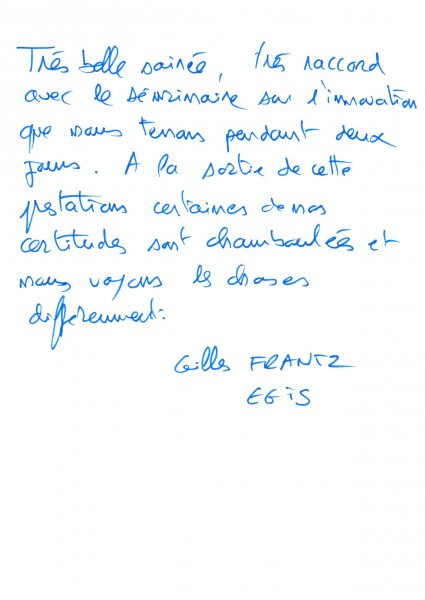 Très belle soirée, très raccord
avec le séminaire sur l'innovation
que nous tenons pendant deux
jours. A la sortie de cette
prestation, certaines de nos
certitudes sont chamboulées et
nous voyons les choses
différemment.
Gilles FRANTZ
EGIS